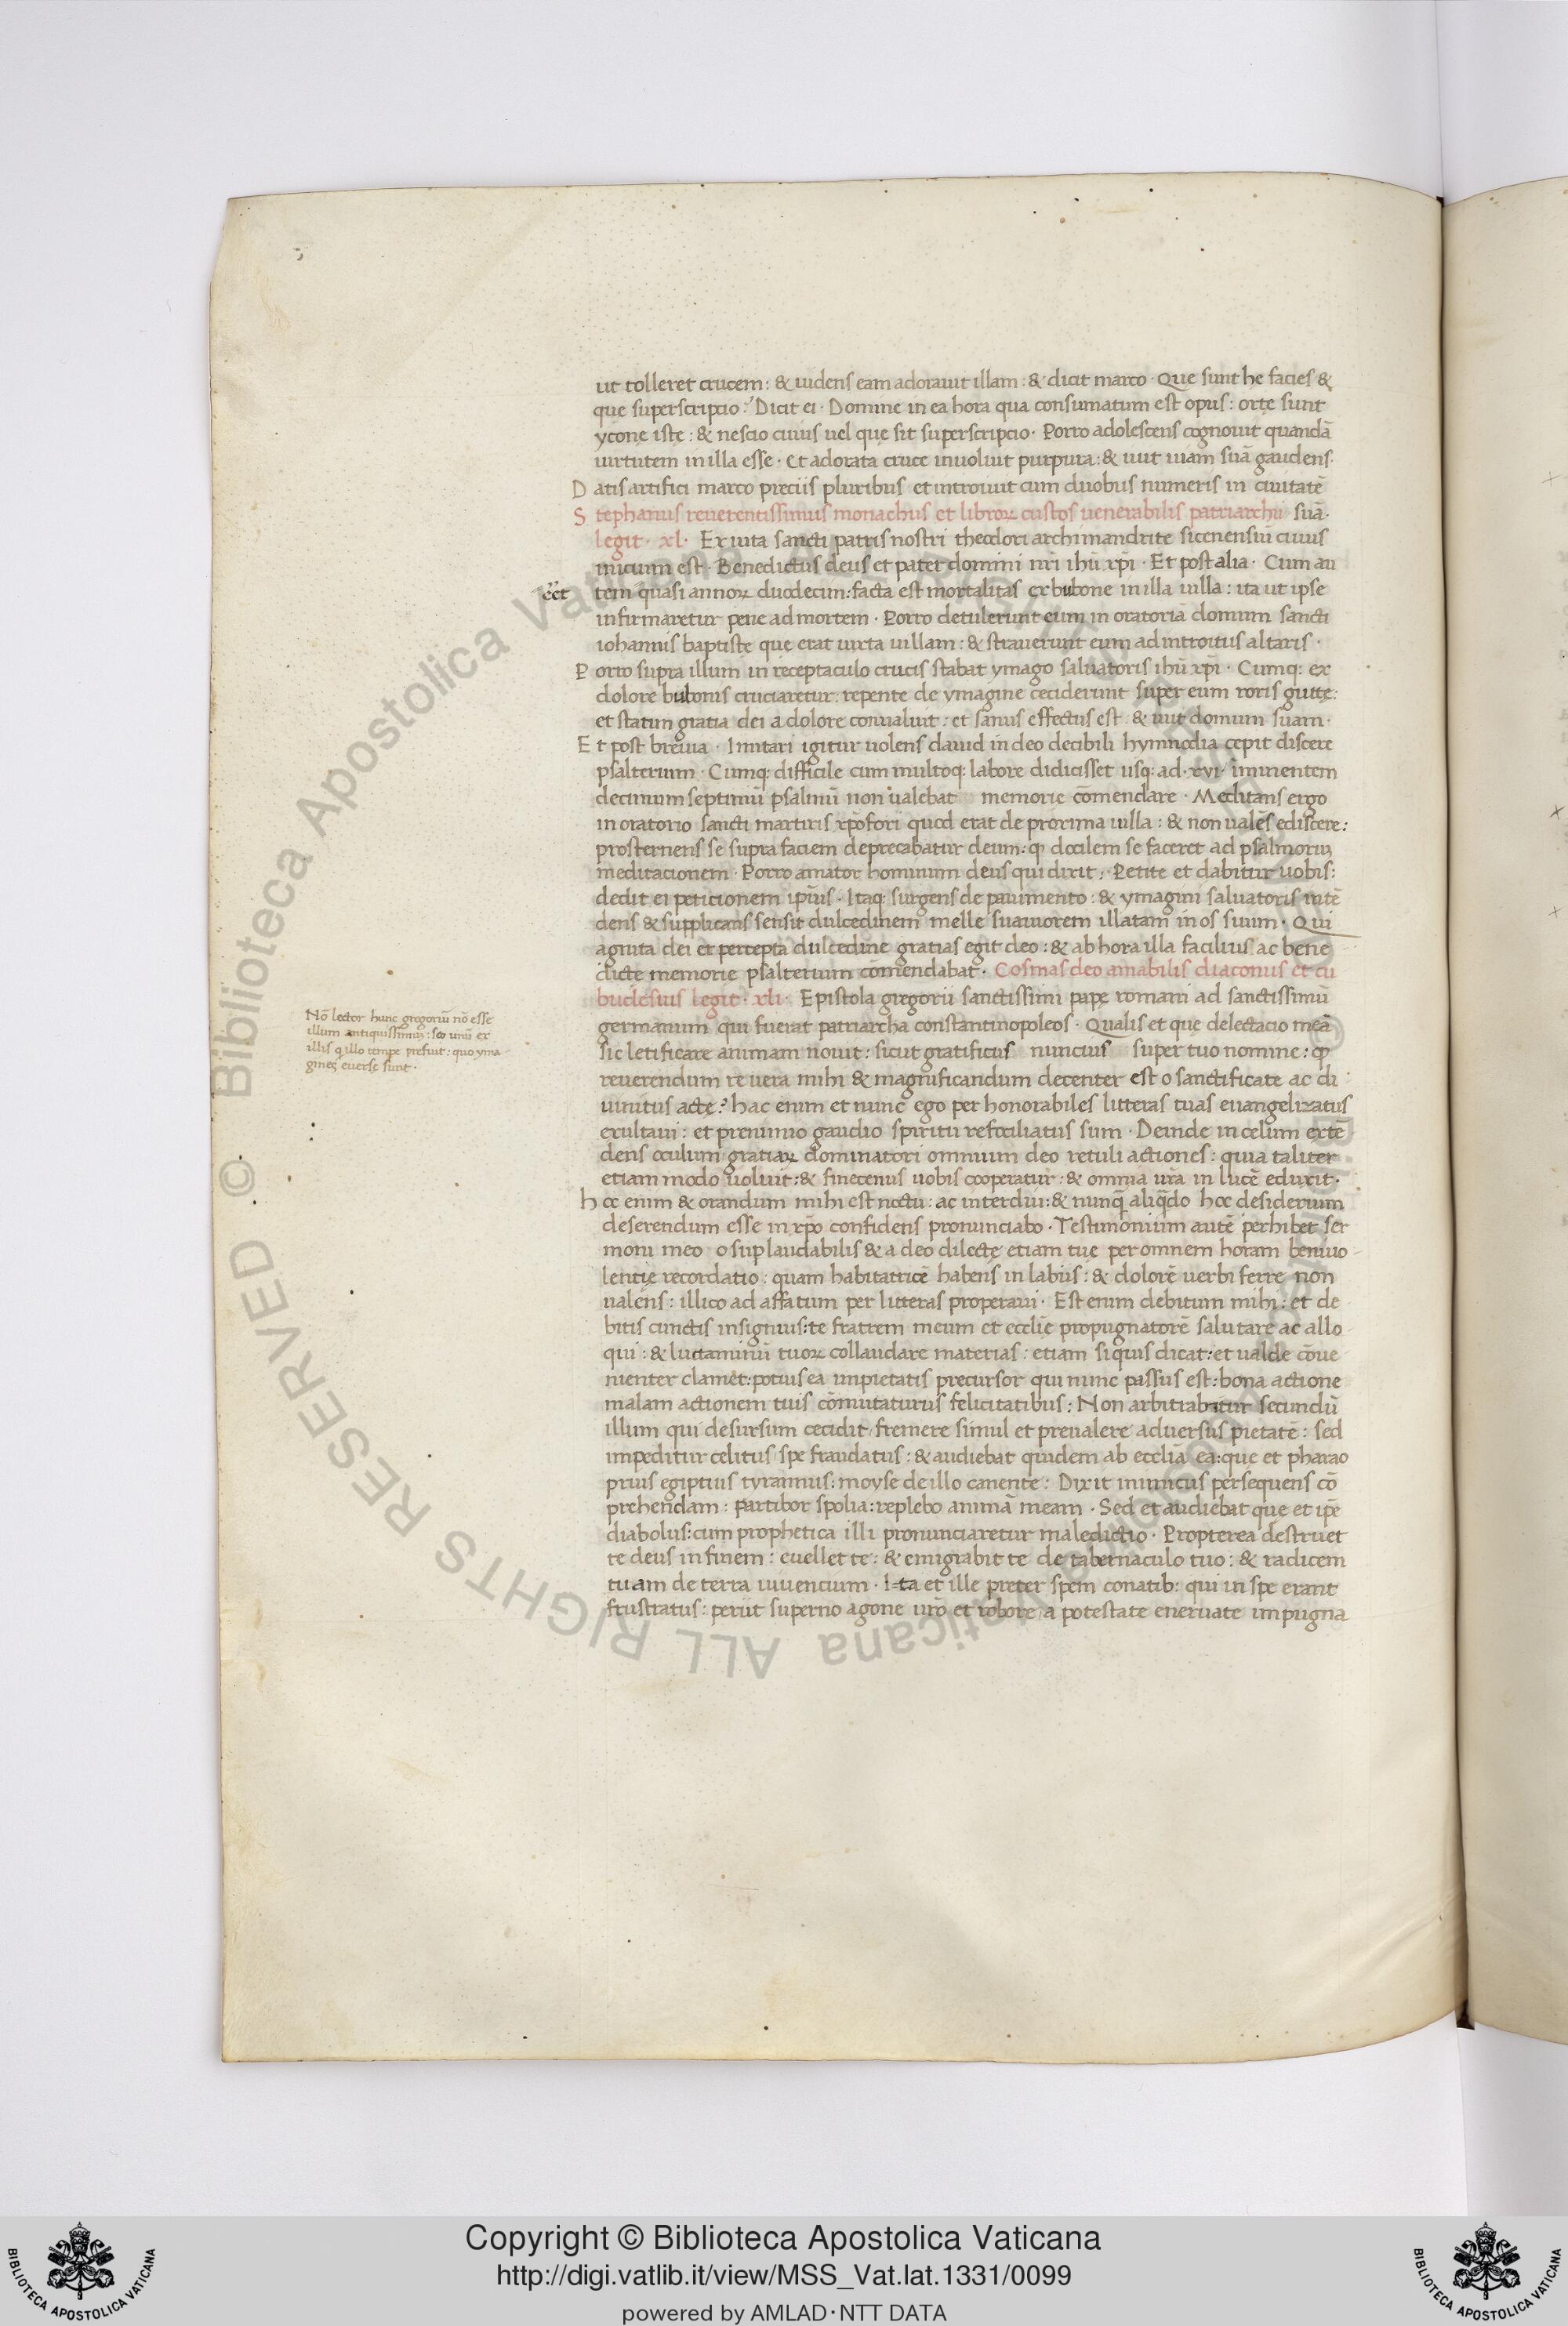 ut tolleret crucem: & uidens eam adorauit illam: & dicit marco · Que sunt he facies &
que superscripcio? Dicit ei · Domine in ea hora qua consumatum est opus: orte sunt
ycone iste: & nescio cuius uel que sit superscripcio · Porro adolescens cognouit quandā
uirtutem in illa esse · Et adorata cruce inuoluit purpura: & iuit uiam suā gaudens·
Datis artifici marco preciis pluribus et introiuit cum duobus numeris in ciuitatē
Stephanus reuerentissimus monachus et libroꝝ custos uenerabilis patriarchii suā·
legit · xl· Ex uita sancti patris nostri theodori archimandrite sicenensiū cuius
inicium est · Benedictus deus et pater domini nr̄i ihū xp̄i · Et post alia · Cum au
eēt tem quasi annoꝝ duodecim: facta est mortalitas ex bubone in illa uilla: ita ut ipse
infirmaretur pene ad mortem · Porro detulerunt eum in oratoriā domum sancti
iohannis baptiste que erat iuxta uillam: & strauerunt eum ad introitus altaris ·
Porro supra illum in receptaculo crucis stabat ymago saluatoris ihū xp̄i · Cumq: ex
dolore bubonis cruciaretur: repente de ymagine ceciderunt super eum roris gutte:
et statim gratia dei a dolore conualuit: et sanus effectus est & iuit domum suam·
Et post breuia · Imitari igitur uolens dauid in deo decibili hymnodia cepit discere
psalterium · Cumq: difficile cum multoq: labore didicisset usq: ad · xvi · iminentem
decimum septimū psalmū non ualebat memorie cōmendare · Meditans ergo
in oratorio sancti martiris xp̄ofori quod erat de proxima uilla: & non ualēs ediscere:
prosternens se supra faciem deprecabatur deum: ꝙ docilem se faceret ad psalmorū
meditacionem · Porro amator hominum deus qui dixit; Petite et dabitur uobis:
dedit ei peticionem ip̄ius · Itaq: surgens de pauimento: & ymagini saluatoris intē
dens & supplicans sensit dulcedinem melle suauiorem illatam in os suum · Qui
agnita dei et percepta dulcedine gratias egit deo: & ab hora illa facilius ac bene
dicte memorie psalterium cōmendabat · Cosmas deo amabilis diaconus et cu
budesius legit · xli· Epistola gregorii sanctissimi pape romani ad sanctissimū
germanum qui fuerat patriarcha constantinopoleos · Qualis et que delectacio meā
Nō lector hunc gregoriū nō esse
illum antiquissimū: seo unū ex
illis q illo tempe prefuit: quo yma-
gines euerse sunt·
sic letificare animam nouit: sicut gratificus nuncius super tuo nomine: ꝙ
reuerendum re uera mihi & magnificandum decenter est o sanctificate ac di
uinitus acte? hac enim et nunc ego per honorabiles litteras tuas euangelizatus
exultaui: et prenimio gaudio spiritu refociliatus sum · Deinde in celum extē
dens oculum gratiaꝝ dominatori omnium deo retuli actiones: quia taliter
etiam modo uoluit: & finetenus uobis cooperatur: & omnia ur̄a in lucē eduxit·
hoc enim & orandum mihi est noctu: ac interdiu: & nunq̄ aliq̄do hoc desiderium
deserendum esse in xp̄o confidens pronunciabo · Testimonium autē perhibet ser
moni meo o suplaudabilis & a deo dilecte etiam tue per omnem horam beniuo-
lentie recordatio: quam habitatricē habens in labiis: & dolorē uerbi ferre non
ualens: illico ad affatum per litteras properaui · Est enim debitum mihi: et de
bitis cunctis insignius: te fratrem meum et eccl̄ie propugnatorē salutare ac allo-
qui: & luctaminū tuoꝝ collaudare materias: etiam si quis dicat: et ualde cōue
nienter clamet: potius ea impietatis precursor qui nunc passus est: bona actione
malam actionem tuis cōmutaturus felicitatibus: Non arbitrabatur secundū
illum qui desursum cecidit fremere simul et preualere aduersus pietatē: sed
impeditur celitus spe fraudatus: & audiebat quidem ab eccl̄ia ea: que et pharao
prius egiptius tyrannus: moyse de illo canente: Dixit inimicus persequens cō
prehendam: partibor spolia: replebo animā meam · Sed et audiebat que et ip̄e
diabolus: cum prophetica illi pronunciaretur maledictio · Propterea destruet
te deus in finem: euellet te: & emigrabit te de tabernaculo tuo: & radicem
tuam de terra uiuencium · I=ta et ille preter spem conatib: qui in spe erant
frustratus: periit superno agone ur̄o et robore a potestate eneruate impugna
© Biblioteca Apostolica Vaticana ALL RIGHTS RESERVED
Copyright © Biblioteca Apostolica Vaticana
http://digi.vatlib.it/view/MSS_Vat.lat.1331/0099
powered by AMLAD·NTT DATA
BIBLIOTECA APOSTOLICA VATICANA
BIBLIOTECA APOSTOLICA VATICANA